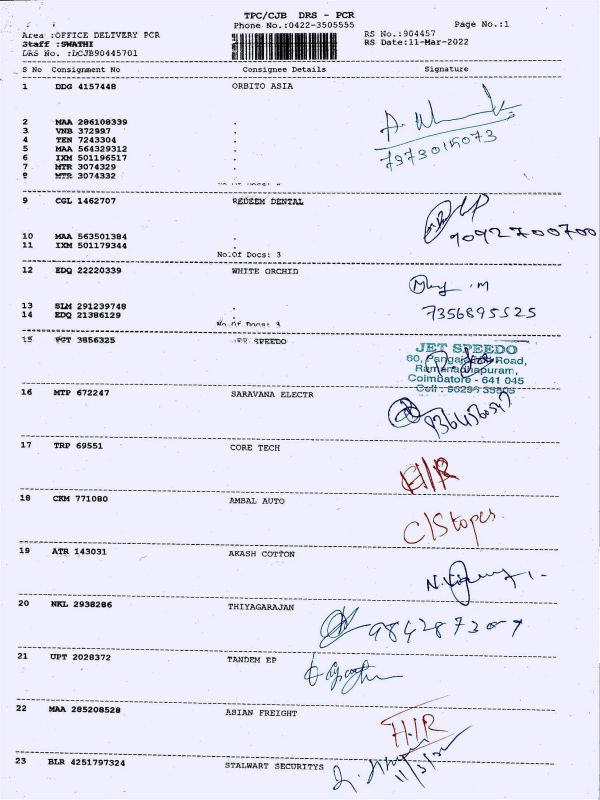 TPC/CJB DRS - PCR
Phone No.:0422-3505555 Page No.:1
Area :OFFICE DELIVERY PCR RS No.:904457
Staff :SWATHI RS Date:11-Mar-2022
DRS No. :LCJB90445701
S No Consignment No Consignee Details Signature
1 DDG 4157448 ORBITO ASIA
2 MAA 286108339 .
3 VNB 372997 .
4 TEN 7243304 .
5 MAA 564329312 .
6 IXM 501196517 .
7 MTR 3074329 .
8 MTR 3074332 .
7973015073
9 CGL 1462707 REDEEM DENTAL
10 MAA 563501384 .
11 IXM 501179344 .
No.Of Docs: 3
9092700700
12 EDQ 22220339 WHITE ORCHID
13 SLM 291239748 .
14 EDQ 21386129 .
No.Of Docs: 3
7356895525
15 3856325 JET SPEEDO
JET SPEEDO
60, Road,
Ramanadhapuram,
Coimbatore - 641 045
Cell : 90296 35805
16 MTP 672247 SARAVANA ELECTR
17 TRP 69551 CORE TECH
18 CKM 771080 AMBAL AUTO
C/Stopes
19 ATR 143031 AKASH COTTON
20 NKL 2938286 THIYAGARAJAN
9842873007
21 UPT 2028372 TANDEM EP
22 MAA 285208528 ASIAN FREIGHT
H/R
23 BLR 4251797324 STALWART SECURITYS
11/3/22